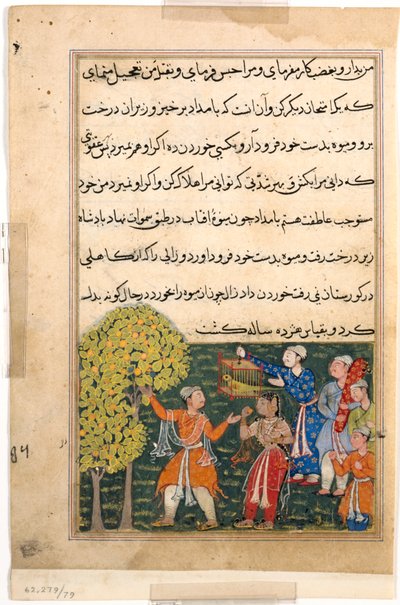 مزیدار و بغضب کار مفرمای و مرا حبس فرمای و بقتل من تعجیل منمای
که یک امتحان دیگر کن و آن انست که بامداد برخیز و زیر آن درخت
برو و میوه بدست خود فرود آر و بکسی خوردن ده اگر او هم بمیرد پس عقوبتی
که دانی مرا بکن و بهر شدتی که توانی مرا هلاک کن و اگر او نمیرد من خود
مستوجب عاطفت هستم بامداد چون میوهٔ افتاب در طبق سموات نهاد بادشاه
زیر درخت رفت و میوه بدست خود فرود اورد و زالی را که از کاهلی
در کورستان می رفت خوردن داد زال چونان میوه را بخورد در حال کونه بدل
کرد و بقیاس هژده ساله کشت
84
62.279/79